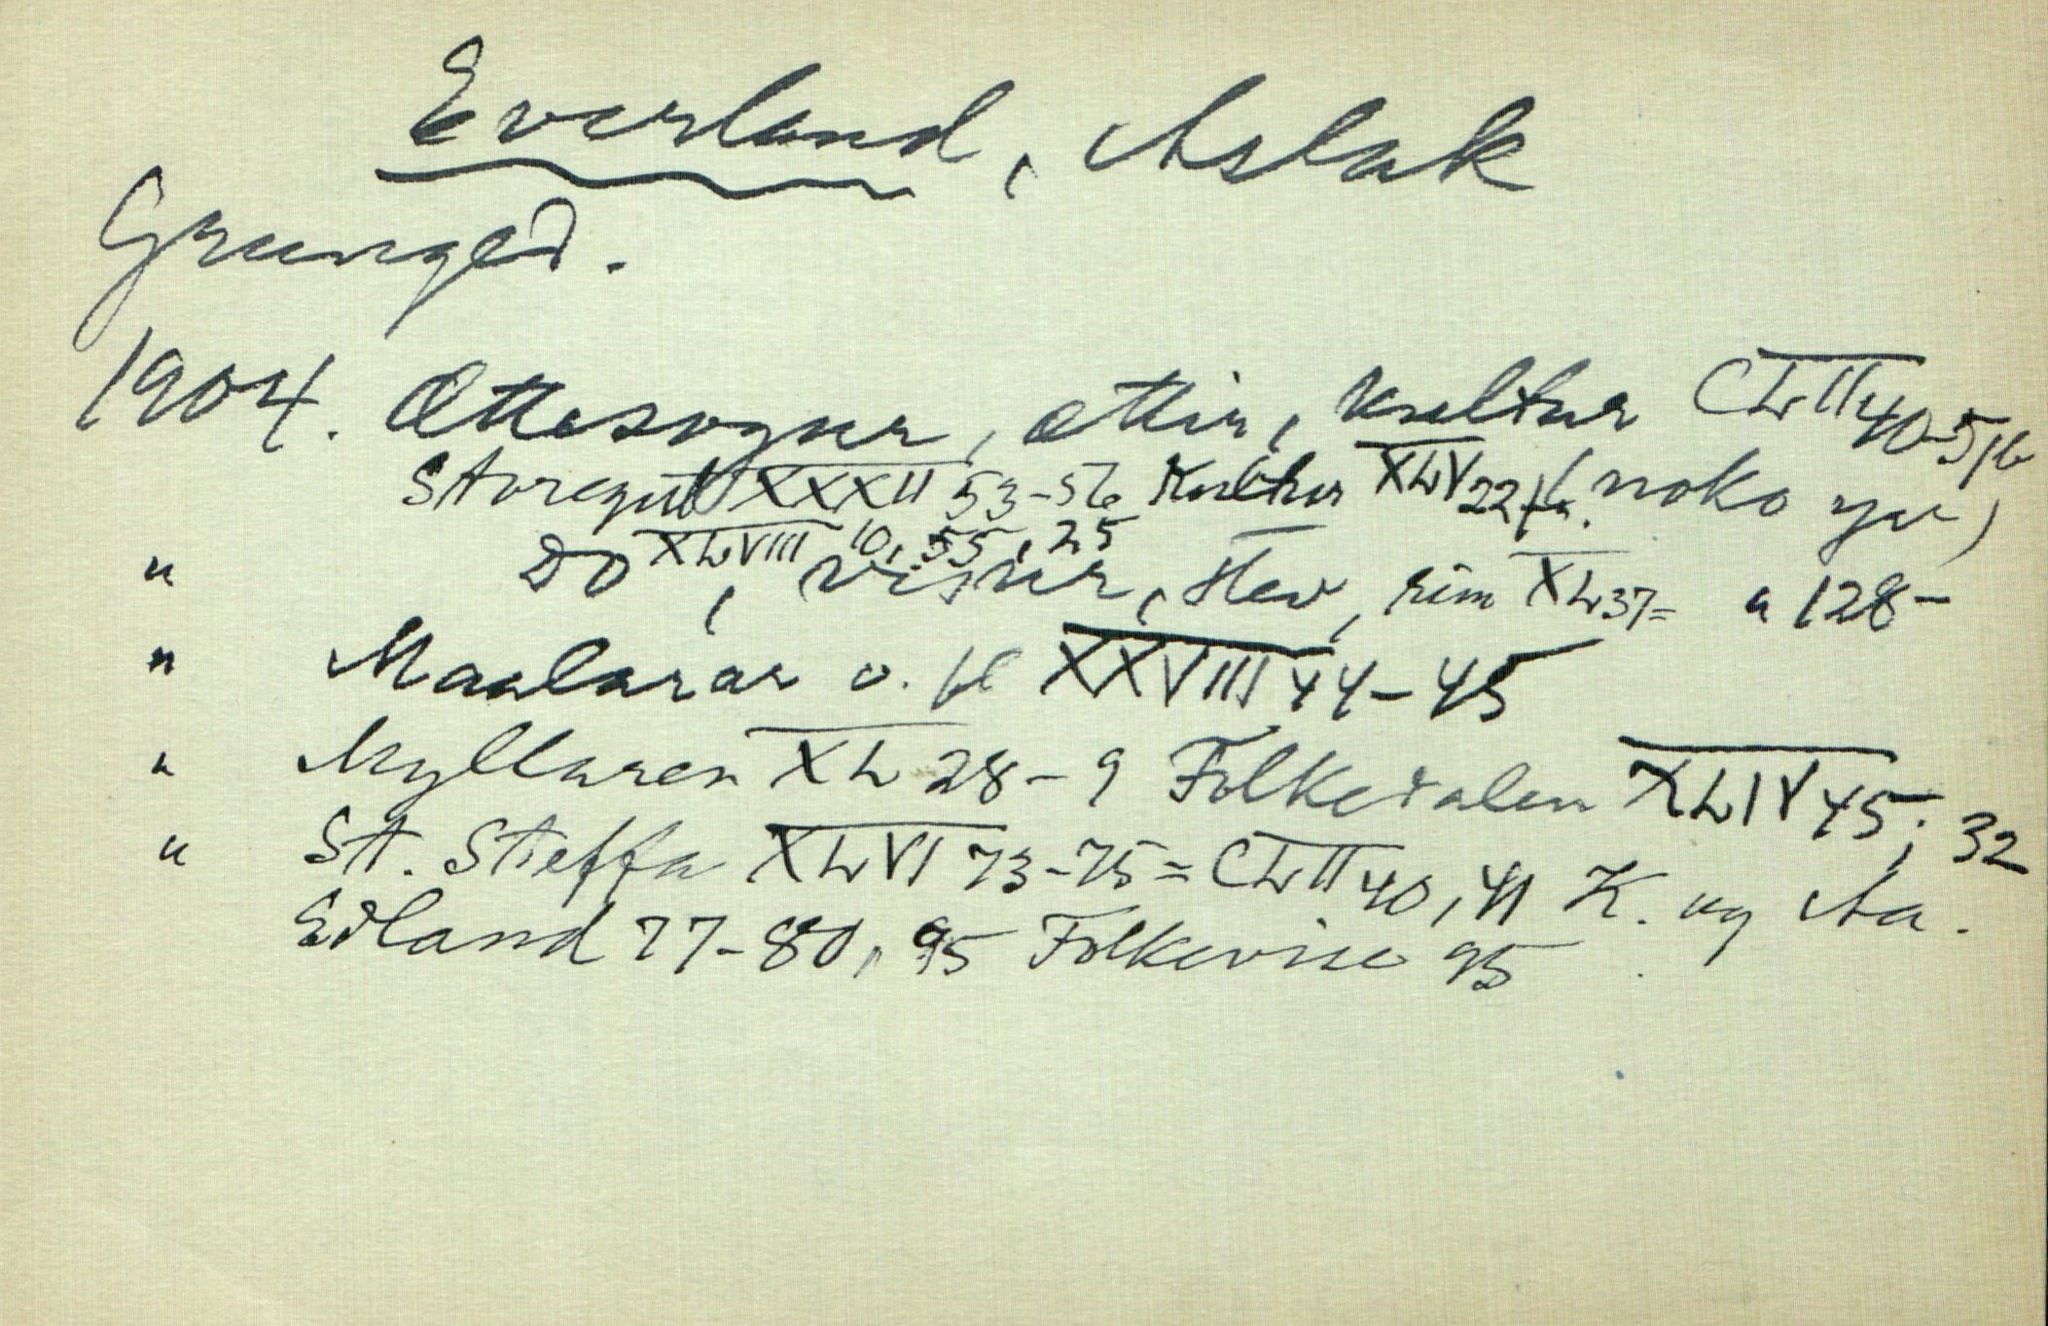 Everland, Aslak
Grunged.
1904. Ættesogur, ættir, kultur CLII 40-56
Storegut XXXII 53-56 Kultur XLV 22 noko yv)
" Do XLVIII 10, 55, 25, visur, stev, rim XL 37= " 128-
" Maalarar o. fl XXVIII 44-45
" Myllaren XL 28-9 Folketalen XLIV 45; 32
" St. Steffa XLVI 73-75= CLII 40, 41 K. ug Aa.
Edland 77-80, 95 Folkevise 95